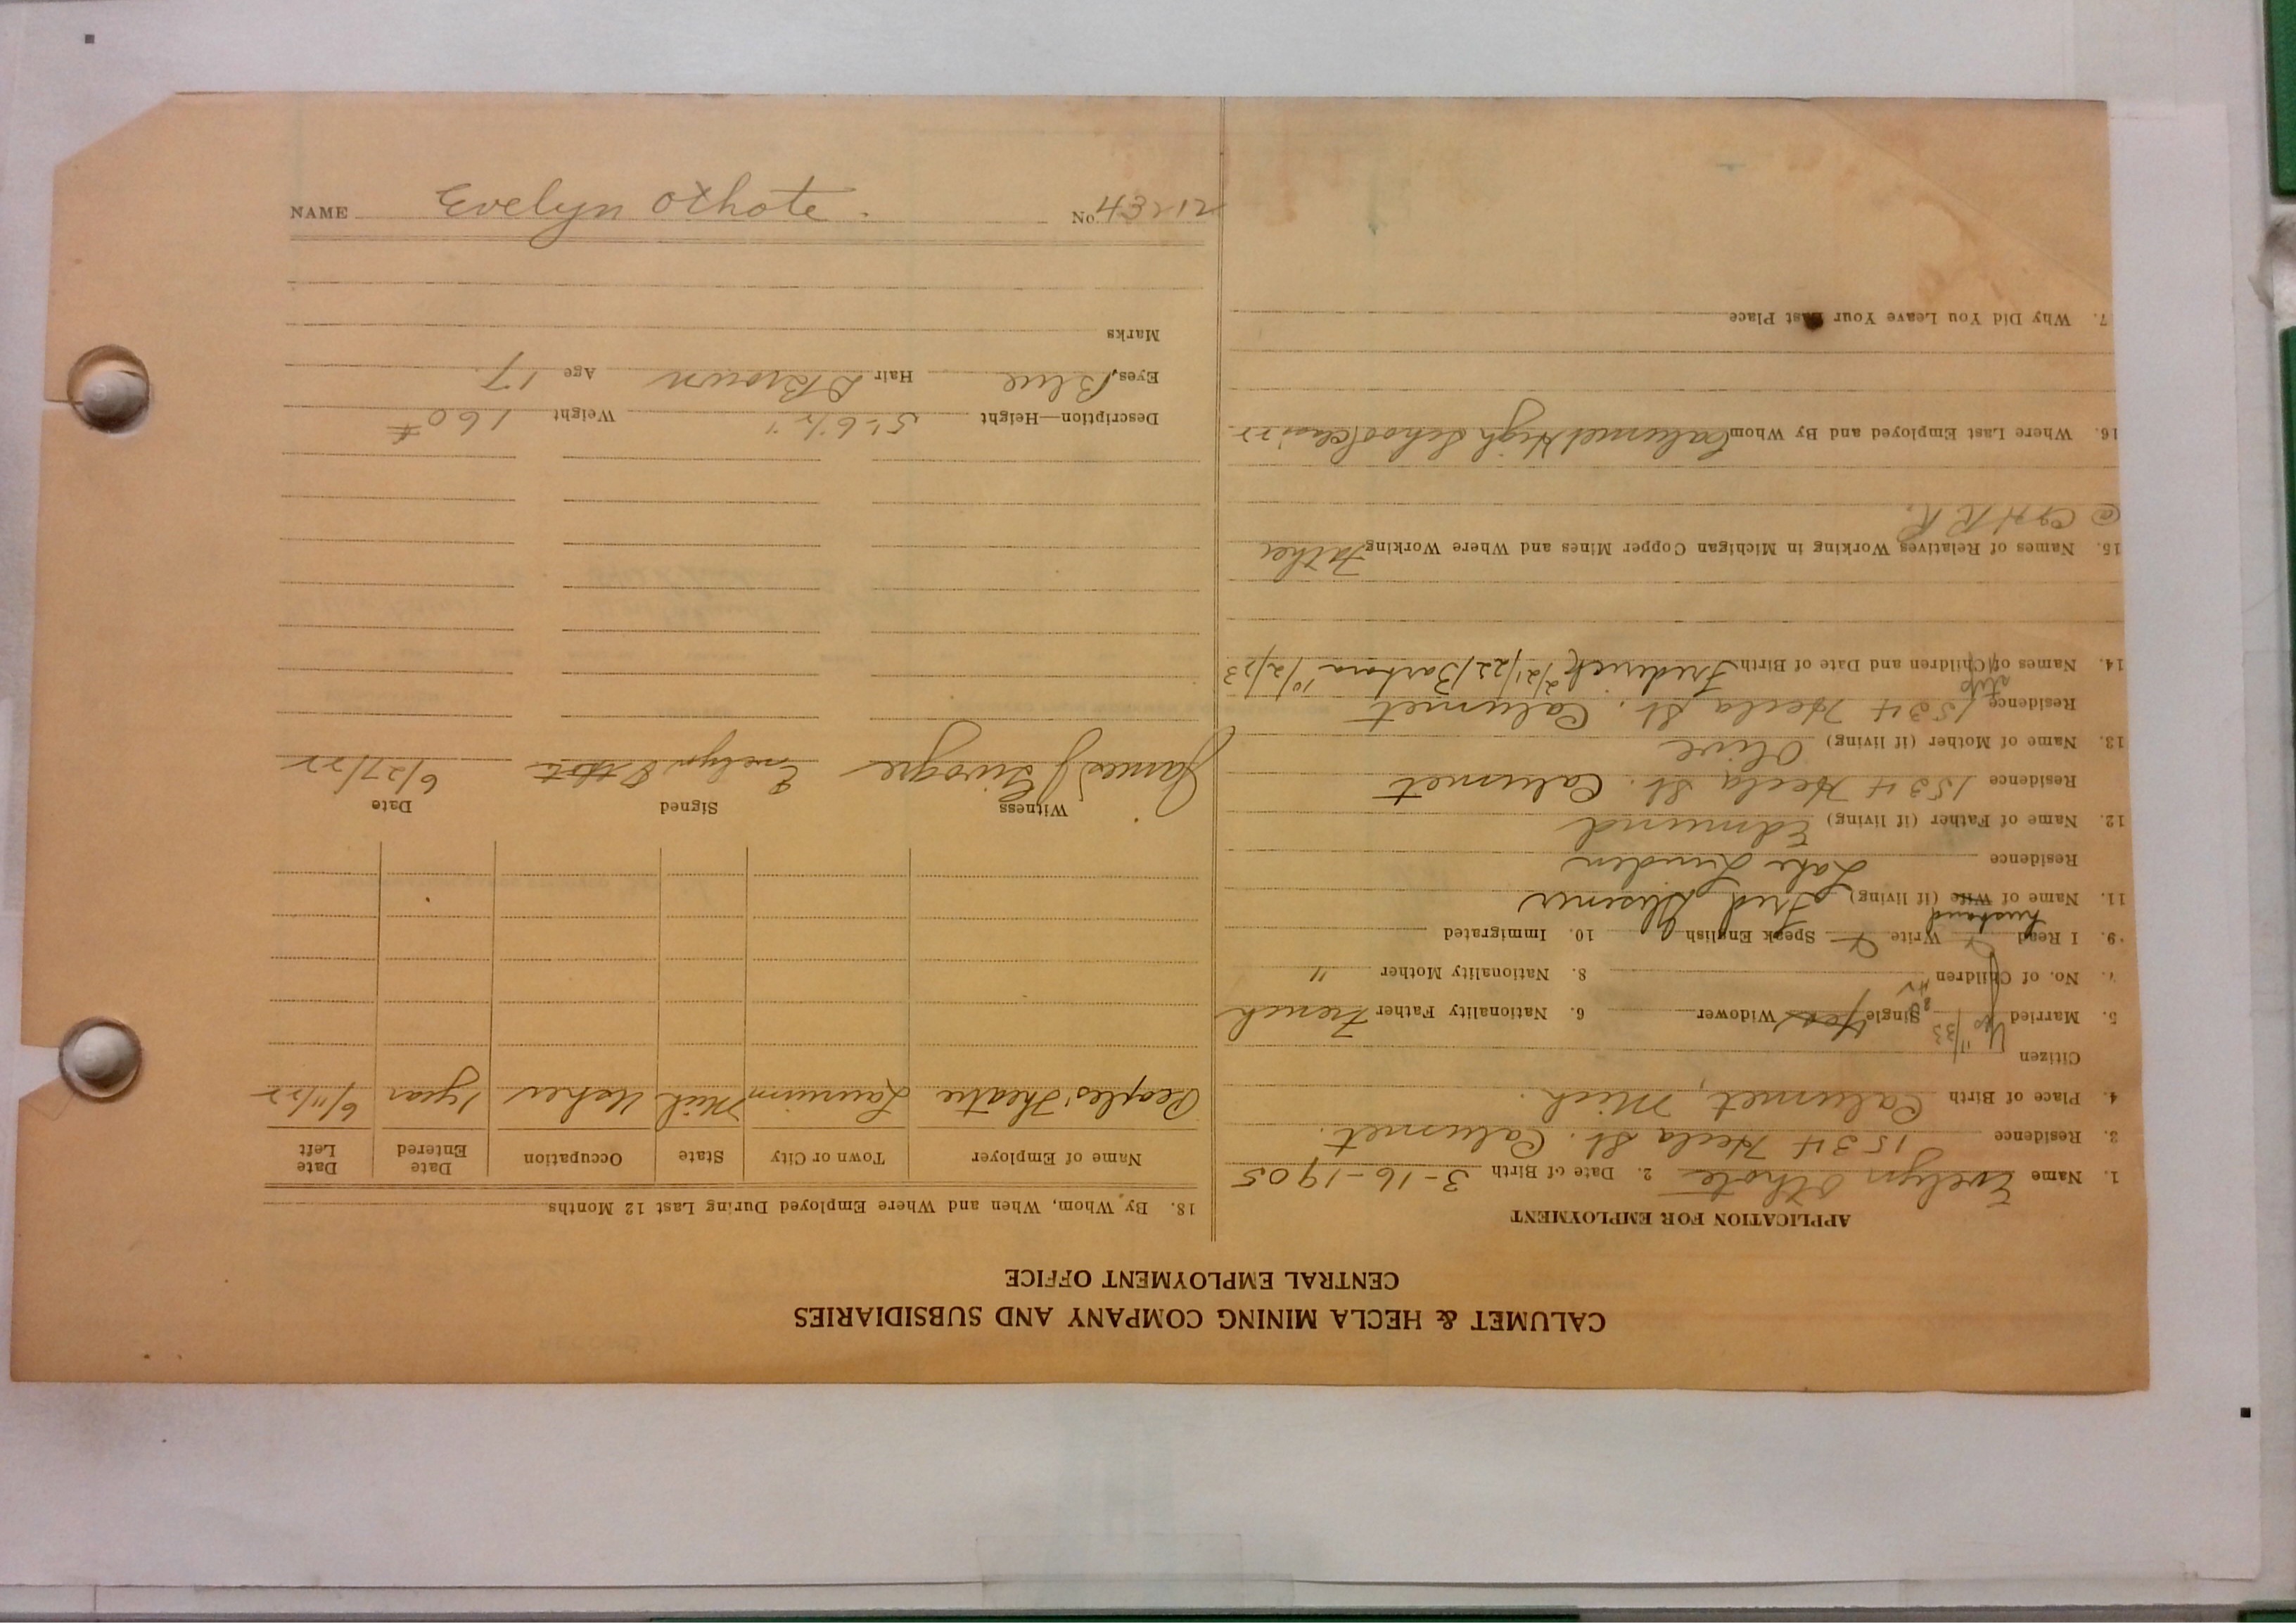 CALUMET & HECLA MINING COMPANY AND SUBSIDIARIES
CENTRAL EMPLOYMENT OFFICE
APPLICATION FOR EMPLOYMENT
1. Name Evelyn Othote 2. Date of Birth 3-16-1905
3. Residence 1534 Hecla St. Calumet.
4. Place of Birth Calumet, Mich.
Citizen
5. Married Yes 11/33 Single Yes Widower 6. Nationality Father French
7. No. of Children 8. Nationality Mother "
9. I Read Write Speak English 10. Immigrated
husband
11. Name of Wife (if living) Fred
Residence Lake Linden
12. Name of Father (if living) Edmund
Residence 1534 Hecla St. Calumet
13. Name of Mother (if living) Olive
Residence 1534 Hecla St. Calumet
step
14. Names of Children and Date of Birth Frederick 2/21/22 Barbara 10/2/23
15. Names of Relatives Working in Michigan Copper Mines and Where Working Father
@ C&H R R.
16. Where Last Employed and By Whom Calumet High School
7. Why Did You Leave Your Last Place
18. By Whom, When and Where Employed During Last 12 Months
Name of Employer Town or City State Occupation Date Entered Date Left
Peoples' Theatre Laurium Mich Usher 1 year 6/11/22
Witness Signed Date
James J Evelyn Othote 6/27/22
Description—Height 5'-6½" Weight 160 #
Eyes, Blue Hair D Brown Age 17.
Marks
NAME Evelyn Othote. No. 43212